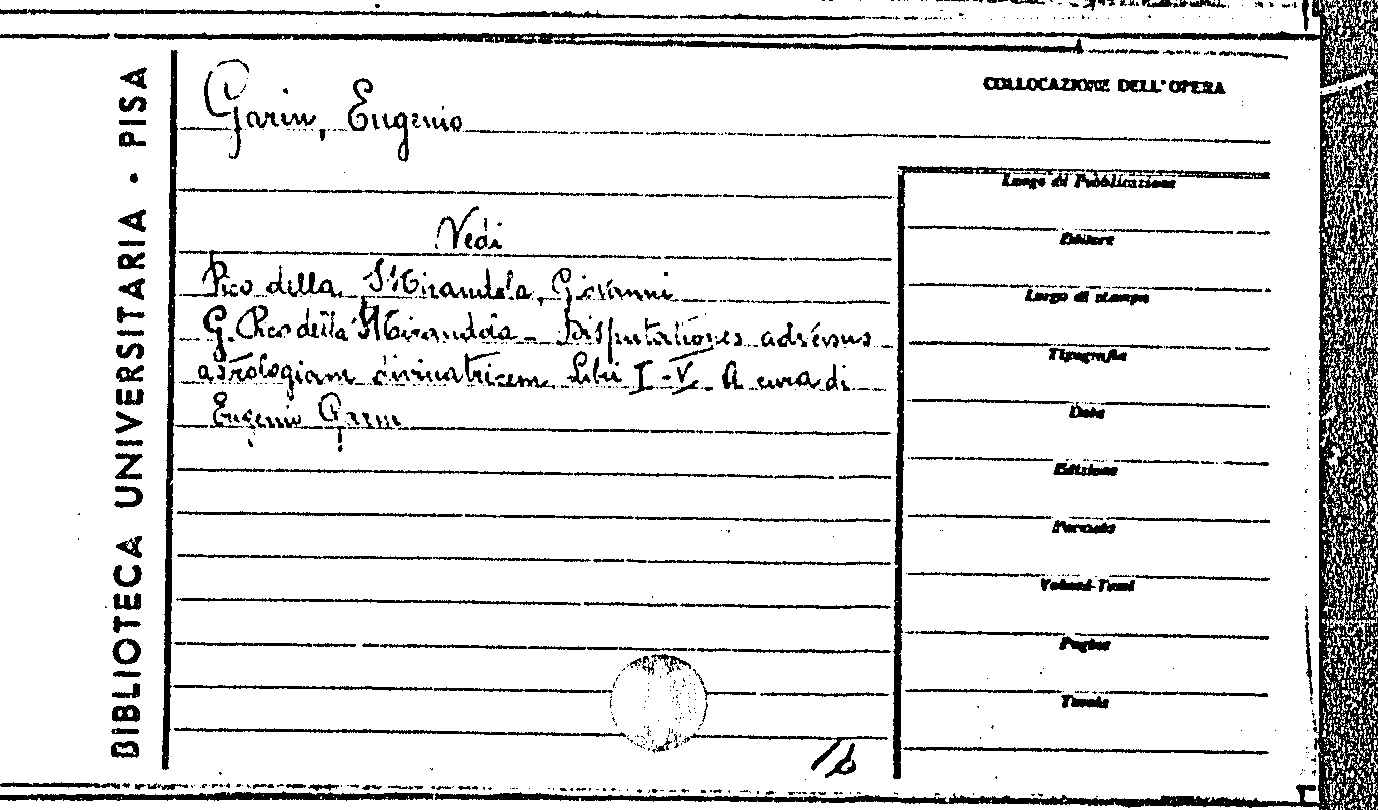 BIBLIOTECA UNIVERSITARIA · PISA
COLLOCAZIONE DELL'OPERA
Garin, Eugenio
Vedi
Pico della Mirandola, Giovanni
G. Pico della Mirandola - Disputationes adversus
astrologiam divinatricem Libri I-V. A cura di
Eugenio Garin
Luogo di Pubblicazione
Editore
Luogo di stampa
Tipografia
Data
Edizione
Formato
Volumi-Tomi
Pagine
Tavole